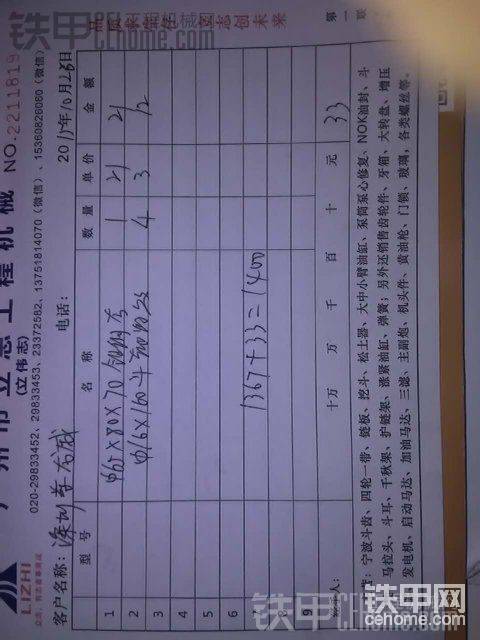 品质来信任 立志创未来
第一联
广州市立志工程机械 NO.2211819
(立伟志)
020-29833452、29833453、23372582、13751814070（微信）、15360826060（微信）
LIZHI
客户名称：深圳 电话： 2015年10月28日
型号 名称 数量 单价 金额
1 φ65×80×70 1 21 21
2 φ16×160 4 3 12
3
4
5
6
7 1367+33=1400
8
9
十万 万 千 百 十 元 33
宁波斗齿、四轮一带、链板、挖斗、松土器、大中小臂油缸、泵筒泵心修复、NOK油封、斗
马拉头、斗耳、千秋架、护链架、涨紧油缸、弹簧；另外还销售齿轮件、牙箱、大转盘、增压
发电机、启动马达、加油马达、三滤、主副炮、机头件、黄油枪、门锁、玻璃，各类螺丝等。
铁甲网
cehome.com